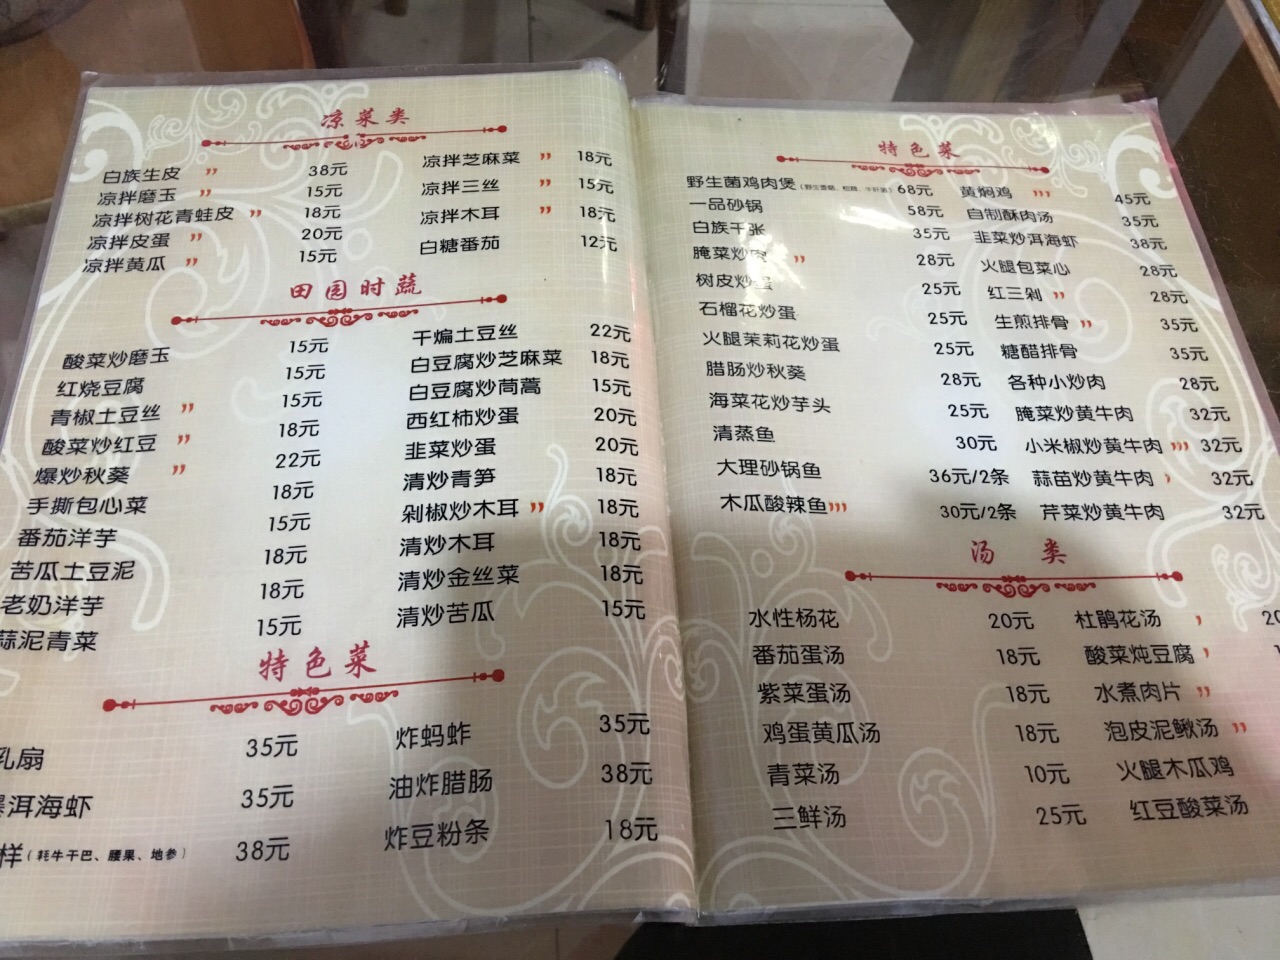 凉菜类
白族生皮 38元
凉拌磨玉 15元
凉拌树花青蛙皮 18元
凉拌皮蛋 20元
凉拌黄瓜 15元
凉拌芝麻菜 18元
凉拌三丝 15元
凉拌木耳 18元
白糖番茄 12元
田园时蔬
酸菜炒磨玉 15元
红烧豆腐 15元
青椒土豆丝 15元
酸菜炒红豆 18元
爆炒秋葵 22元
手撕包心菜 18元
番茄洋芋 15元
苦瓜土豆泥 18元
老奶洋芋 18元
蒜泥青菜 15元
干煸土豆丝 22元
白豆腐炒芝麻菜 18元
白豆腐炒茼蒿 15元
西红柿炒蛋 20元
韭菜炒蛋 20元
清炒青笋 18元
剁椒炒木耳 18元
清炒木耳 18元
清炒金丝菜 18元
清炒苦瓜 15元
特色菜
乳扇 35元
洱海虾 35元
样(牦牛干巴、腰果、地参) 38元
炸蚂蚱 35元
油炸腊肠 38元
炸豆粉条 18元
特色菜
野生菌鸡肉煲 68元
一品砂锅 58元
白族千张 35元
腌菜炒肉 28元
树皮炒蛋 25元
石榴花炒蛋 25元
火腿茉莉花炒蛋 25元
腊肠炒秋葵 28元
海菜花炒芋头 25元
清蒸鱼 30元
大理砂锅鱼 36元/2条
木瓜酸辣鱼 30元/2条
黄焖鸡 45元
自制酥肉汤 35元
韭菜炒洱海虾 38元
火腿包菜心 28元
红三剁 28元
生煎排骨 35元
糖醋排骨 35元
各种小炒肉 28元
腌菜炒黄牛肉 32元
小米椒炒黄牛肉 32元
蒜苗炒黄牛肉 32元
芹菜炒黄牛肉 32元
汤类
水性杨花 20元
番茄蛋汤 18元
紫菜蛋汤 18元
鸡蛋黄瓜汤 18元
青菜汤 10元
三鲜汤 25元
杜鹃花汤 20
酸菜炖豆腐
水煮肉片
泡皮泥鳅汤
火腿木瓜鸡
红豆酸菜汤